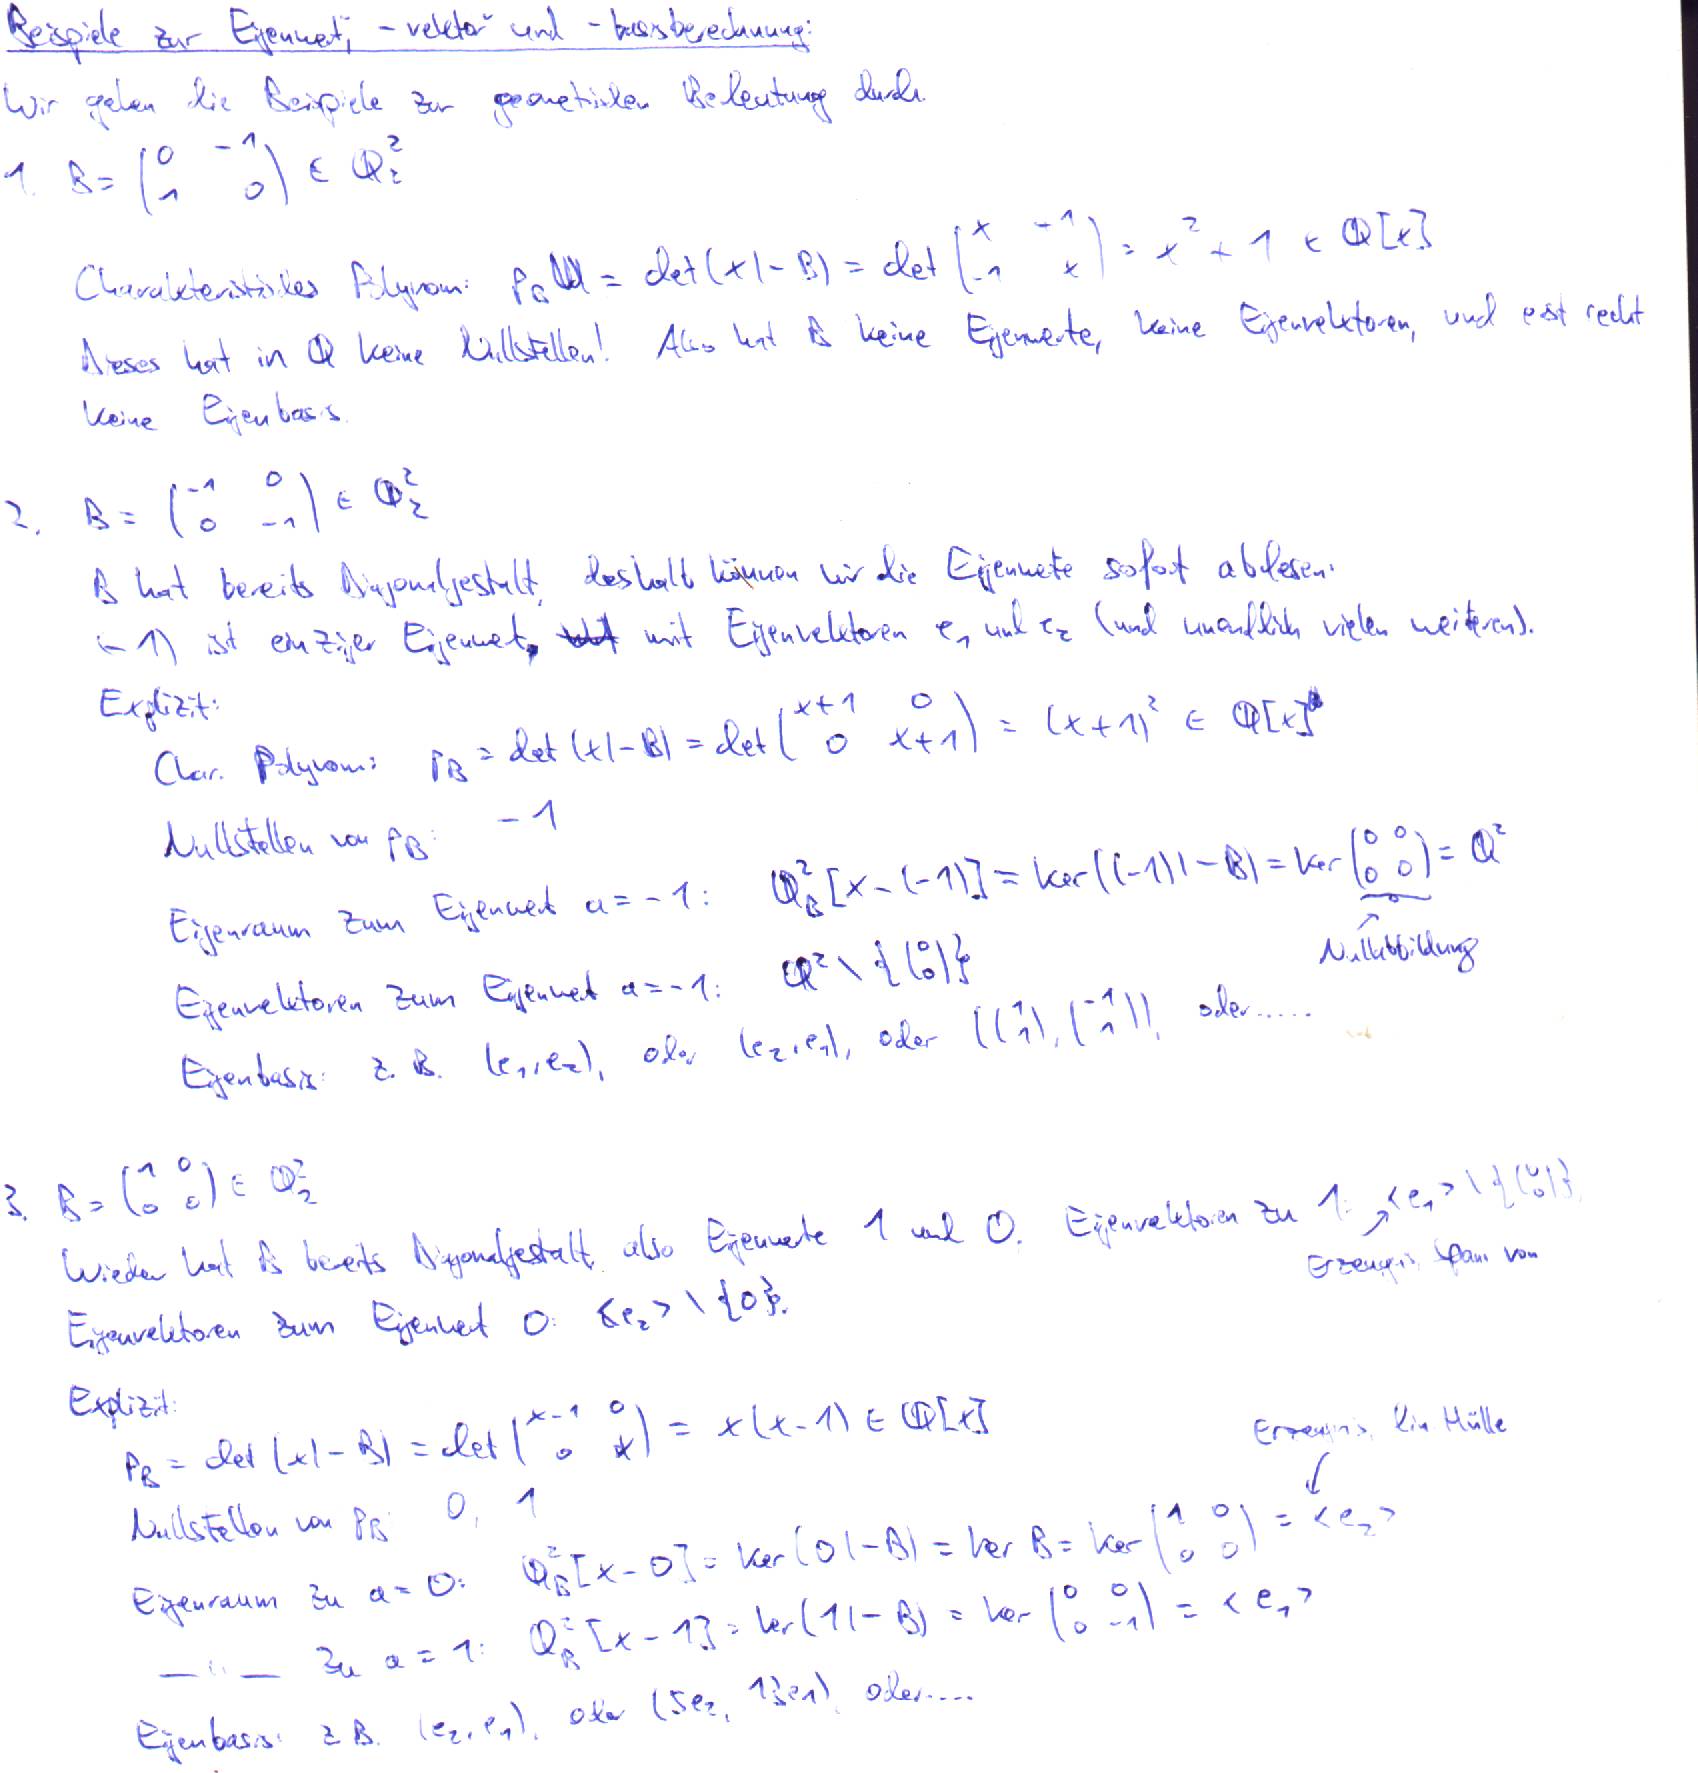 Beispiele zur Eigenwert-, -vektor- und -basisberechnung:
Wir gehen die Beispiele zur geometrischen Bedeutung durch.
1. B = (0 -1; 1 0) ∈ ℚ²₂
Charakteristisches Polynom: p_B = det(xI - B) = det (x -1; -1 x) = x² + 1 ∈ ℚ[x]
Dieses hat in ℚ keine Nullstellen! Also hat B keine Eigenwerte, keine Eigenvektoren, und erst recht
keine Eigenbasis.
2. B = (-1 0; 0 -1) ∈ ℚ²₂
B hat bereits Diagonalgestalt, deshalb können wir die Eigenwerte sofort ablesen:
(-1) ist einziger Eigenwert, mit Eigenvektoren e₁ und e₂ (und unendlich vielen weiteren).
Explizit:
Char. Polynom: p_B = det(xI - B) = det (x+1 0; 0 x+1) = (x+1)² ∈ ℚ[x]
Nullstellen von p_B: -1
Eigenraum zum Eigenwert a = -1: ℚ²_B[x-(-1)] = ker((-1)I - B) = ker (0 0; 0 0) = ℚ²
Nullabbildung
Eigenvektoren zum Eigenwert a = -1: ℚ² \ {(0; 0)}
Eigenbasis: z. B. (e₁, e₂), oder (e₂, e₁), oder ((1; 1), (-1; 1)), oder.....
3. B = (1 0; 0 0) ∈ ℚ²₂
Wieder hat B bereits Diagonalgestalt, also Eigenwerte 1 und 0. Eigenvektoren zu 1: <e₁> \ {(0; 0)}.
Erzeugnis, Span von
Eigenvektoren zum Eigenwert 0: <e₂> \ {0}.
Explizit:
p_B = det(xI - B) = det (x-1 0; 0 x) = x(x-1) ∈ ℚ[x]
Erzeugnis, lin Hülle
Nullstellen von p_B: 0, 1
Eigenraum zu a = 0: ℚ²_B[x-0] = ker(0I - B) = ker B = ker (1 0; 0 0) = <e₂>
—"— zu a = 1: ℚ²_B[x-1] = ker(1I - B) = ker (0 0; 0 -1) = <e₁>
Eigenbasis: z. B. (e₂, e₁), oder (5e₂, 13e₁), oder....